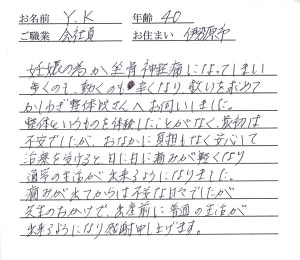 お名前 Y.K 年齢 40
ご職業 会社員 お住まい 伊勢原市
妊娠の為か坐骨神経痛になってしまい
歩くのも、動くのも辛くなり、救いを求めて
かしわぎ整体院さんへお伺いしました。
整体というものを体験したことがなく、最初は
不安でしたが、おなかに負担もなく安心して
治療を受けると、日に日に痛みが軽くなり
通常の生活が出来るようになりました。
痛みが出てからは不安な日々でしたが
先生のおかげで、出産前に普通の生活が
出来るようになり感謝申し上げます。